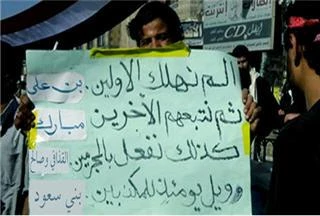 الم نهلك الاولين. بن علي
ثم نتبعهم الآخرين مبارك
كذلك نفعل بالمجرمين. القذافي وصالح
ويل يومئذ للمكذبين. بني سعود
CD